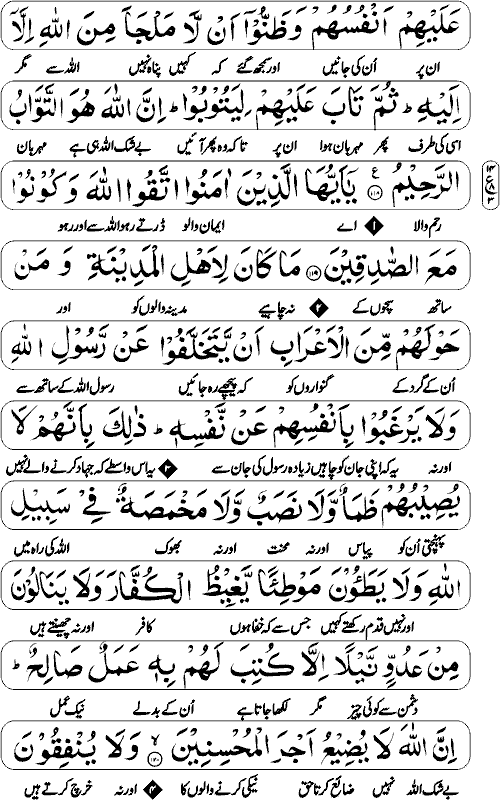 عَلَيْهِمْ اَنْفُسُهُمْ وَظَنُّوْٓا اَنْ لَّا مَلْجَاَ مِنَ اللّٰهِ اِلَّآ
ان پر اُن کی جانیں اور سمجھ گئے کہ کہیں پناہ نہیں اللہ سے مگر
اِلَيْهِ ؕ ثُمَّ تَابَ عَلَيْهِمْ لِيَتُوْبُوْا ؕ اِنَّ اللّٰهَ هُوَ التَّوَّابُ
اسی کی طرف پھر مہربان ہوا ان پر تاکہ وہ پھر آئیں بے شک اللہ ہی ہے مہربان
الرَّحِيْمُ ۧ﴿۱۱۸﴾ يٰٓاَيُّهَا الَّذِيْنَ اٰمَنُوا اتَّقُوا اللّٰهَ وَكُوْنُوْا
رحم والا ۱ اے ایمان والو ڈرتے رہو اللہ سے اور رہو
مَعَ الصّٰدِقِيْنَ ﴿۱۱۹﴾ مَا كَانَ لِاَهْلِ الْمَدِيْنَةِ وَ مَنْ
ساتھ سچوں کے ۲ نہ چاہیے مدینہ والوں کو اور
حَوْلَهُمْ مِّنَ الْاَعْرَابِ اَنْ يَّتَخَلَّفُوْا عَنْ رَّسُوْلِ اللّٰهِ
اُن کے گرد کے گنواروں کو کہ پیچھے رہ جائیں رسول اللہ کے ساتھ سے
وَلَا يَرْغَبُوْا بِاَنْفُسِهِمْ عَنْ نَّفْسِهٖ ؕ ذٰلِكَ بِاَنَّهُمْ لَا
اور نہ یہ کہ اپنی جان کو چاہیں زیادہ رسول کی جان سے ۳ یہ اس واسطے کہ جہاد کرنے والے نہیں
يُصِيْبُهُمْ ظَمَاٌ وَّلَا نَصَبٌ وَّلَا مَخْمَصَةٌ فِيْ سَبِيْلِ
پہنچتی اُن کو پیاس اور نہ محنت اور نہ بھوک اللہ کی راہ میں
اللّٰهِ وَلَا يَطَـُٔوْنَ مَوْطِئًا يَّغِيْظُ الْكُفَّارَ وَلَا يَنَالُوْنَ
اور نہیں قدم رکھتے کہیں جس سے کہ خفا ہوں کافر اور نہ چھینتے ہیں
مِنْ عَدُوٍّ نَّيْلًا اِلَّا كُتِبَ لَهُمْ بِهٖ عَمَلٌ صَالِحٌ ؕ
دشمن سے کوئی چیز مگر لکھا جاتا ہے اُن کے بدلے نیک عمل
اِنَّ اللّٰهَ لَا يُضِيْعُ اَجْرَ الْمُحْسِنِيْنَ ۙ﴿۱۲۰﴾ وَلَا يُنْفِقُوْنَ
بے شک اللہ نہیں ضائع کرتا حق نیکی کرنے والوں کا ۴ اور نہ خرچ کرتے ہیں